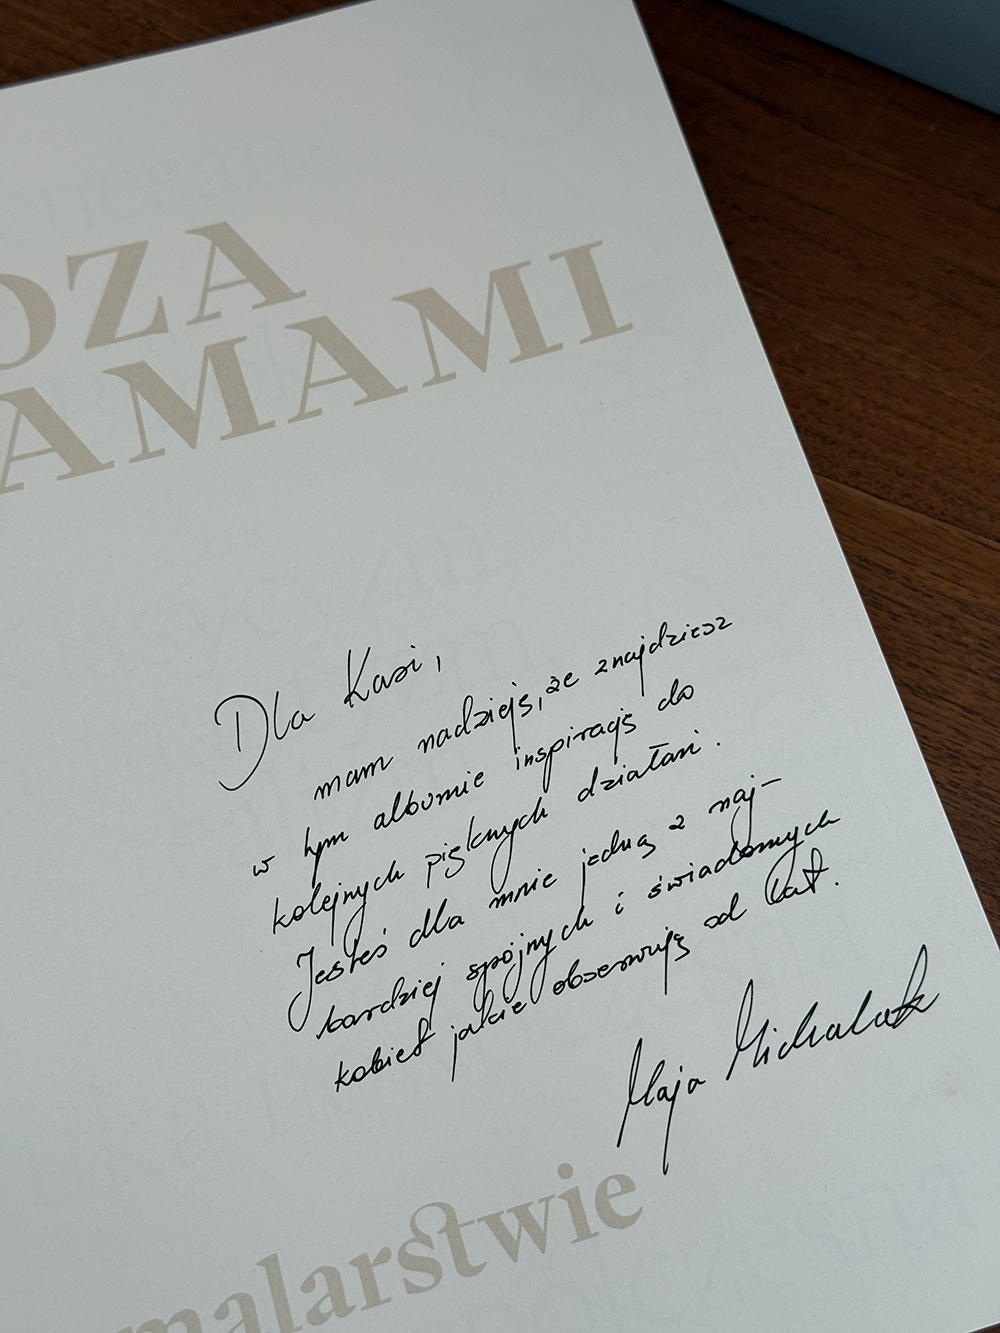 OZA
AMAMI
Dla Kasi,
mam nadzieję, że znajdziesz
w tym albumie inspirację do
kolejnych pięknych działań.
Jesteś dla mnie jedną z naj-
bardziej spójnych i świadomych
kobiet jakie obserwuję od lat.
Maja Michalak
malarstwie